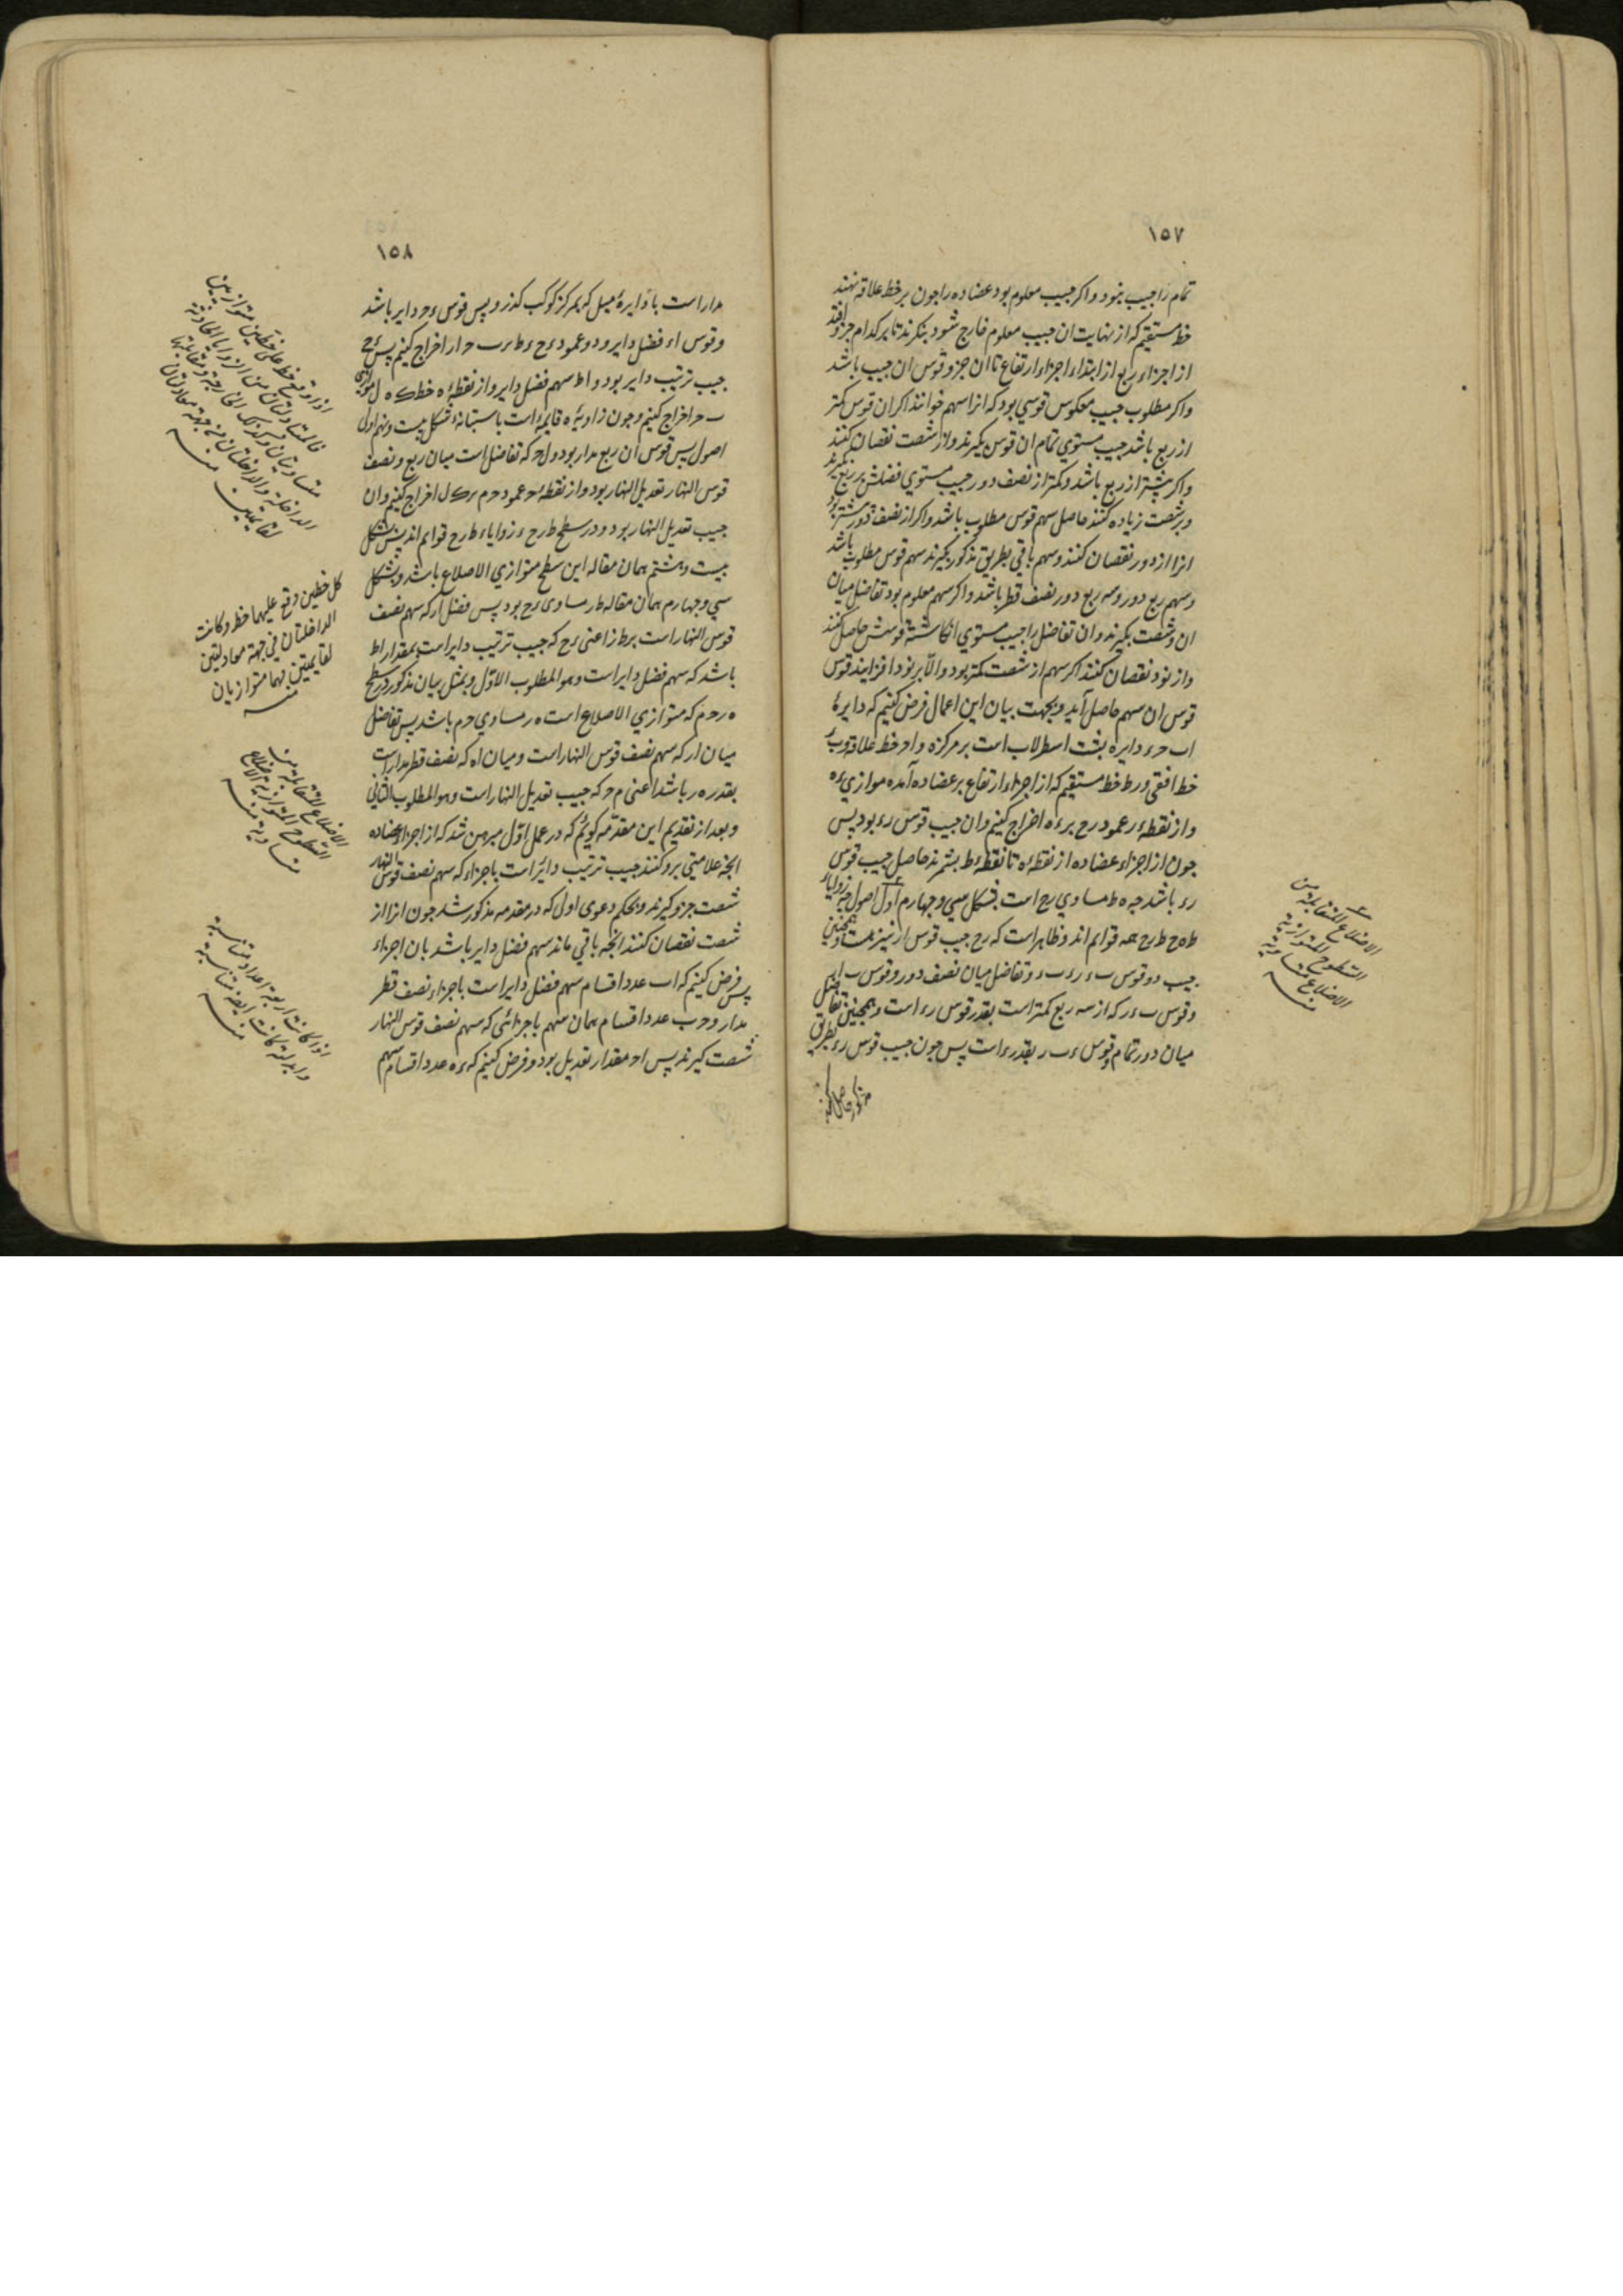 ١٥٧
تمام را جیب بنود و اکر جیب معلوم بود عضاده را جون بر خط علاقه نهند
خط مستقیم که از نهایت ان جیب معلوم خارج شود بنکرند تا بر کدام جزو افتد
از اجزاء ربع از ابتداء اجزاء ارتفاع تا ان جزو قوس ان جیب باشد
و اکر مطلوب جیب معکوس قوسی بود که انرا سهم خوانند اکر ان قوس کمتر
از ربع باشد جیب مستوی تمام ان قوس بکیرند و از شصت نقصان کنند
و اکر بیشتر از ربع باشد و کمتر از نصف دور جیب مستوی فضلش بر ربع بکیرند
و بر شصت زیاده کنند حاصل سهم قوس مطلوب باشد و اکر از نصف دور بیشتر بود
انرا از دور نقصان کنند و سهم باقی بطریق مذکور بکیرند سهم قوس مطلوب باشد
و سهم ربع دور و سه ربع دور نصف قطر باشد و اکر سهم معلوم بود تفاضل میان
ان و شصت بکیرند و ان تفاضل را جیب مستوی انکاشته قوسش حاصل کنند
و از نود نقصان کنند اکر سهم از شصت کمتر بود و الا بر نود افزایند قوس
قوس ان سهم حاصل آید و بجهت بیان این اعمال فرض کنیم که دایرهٔ
اب حء دایره پشت اسطرلاب است بر مرکز ه و اح خط علاقه و ب ء
خط افقی و ر ط خط مستقیم که از اجزاء ارتفاع بر عضاده آمده موازی ءه
و از نقطهٔ ر عمود رح بر ءه اخراج کنیم و ان جیب قوس رء بود پس
جون از اجزاء عضاده از نقطهٔ ه تا نقطهٔ ط بشمرند حاصل جیب قوس
رء باشد جه ه ط مساوی رح است بشکل سی و جهارم اول اصول جه زوایاء
ط ه ح ط رح همه قوایم اند و ظاهر است که رح جیب قوس ار نیز هست و همچنین
جیب دو قوس ب ء رء ب ء و تفاضل میان نصف دور و قوس ب ار
و قوس ب ءر که از سه ربع کمتر است بقدر قوس رء است و همچنین تفاضل
میان دور تمام و قوس ءب ر بقدر رء است پس جون جیب قوس رء بطریق
مذکور حاصل کنند
الاضلاع المتقابلة من
السطوح المتوازیة
الاضلاع متساویة
منه
١٥٨
مدار است با دایرهٔ میل که بمرکز کوکب کذرد پس قوس ءح دایر باشد
و قوس اء فضل دایر و دو عمود ءح ءط بر ب ح ار اخراج کنیم پس ءح
جیب ترتیب دایر بود و اط سهم فضل دایر و از نقطهٔ ه خط ک ه ل موازی
ب ح اخراج کنیم و جون زاویهٔ ه قایمه است باستبانهٔ شکل بیست و نهم اول
اصول پس قوس ان ربع مدار بود و ل ح که تفاضل است میان ربع و نصف
قوس النهار تعدیل النهار بود و از نقطهٔ ح عمود ح م بر ک ل اخراج کنیم و ان
جیب تعدیل النهار بود و در سطح ط ر ح ء زوایاء ط ر ح قوایم اند پس بشکل
بیست و هشتم همان مقاله این سطح متوازی الاضلاع باشد و بشکل
سی و جهارم همان مقاله ط ر مساوی ء ح بود پس فضل ار که سهم نصف
قوس النهار است بر ط ر اعنی ء ح که جیب ترتیب دایر است بمقدار اط
باشد که سهم فضل دایر است و هو المطلوب الاول و بمثل بیان مذکور در سطح
ه ر ح م که متوازی الاضلاع است ه ر مساوی ح م باشد پس تفاضل
میان ار که سهم نصف قوس النهار است و میان اه که نصف قطر مدار است
بقدر ه ر باشد اعنی م ح که جیب تعدیل النهار است و هو المطلوب الثانی
و بعد از تقدیم این مقدمه کوئیم که در عمل اول مبرهن شد که از اجزاء عضاده
انجه علامتی برو کنند جیب ترتیب دایر است باجزاء که سهم نصف قوس النهار
شصت جزو کیرند و بحکم دعوی اول که در مقدمه مذکور شد جون انرا از
شصت نقصان کنند انجه باقی ماند سهم فضل دایر باشد بان اجزاء
پس فرض کنیم که اب عدد اقسام سهم فضل دایر است باجزاء نصف قطر
مدار و ح ب عدد اقسام همان سهم باجزائی که سهم نصف قوس النهار
شصت کیرند پس اح مقدار تعدیل بود و فرض کنیم که ءه عدد اقسام سهم
اذا وقع خط علی خطین متوازیین
فالمتبادلتان من الزوایا الحادثة
متساویتان و کذلک الخارجة و مقابلتها
الداخلة و الداخلتان من جهة معادلتان
لقائمتین منه
کل خطین وقع علیهما خط و کانت
الداخلتان فی جهة معادلتین
لقایمتین فهما متوازیان
منه
الاضلاع المتقابلة من
السطوح المتوازیة الاضلاع
متساویة منه
اذا کانت اربعة اعداد متناسبة
و ابدلت کانت ایضا متناسبة
منه